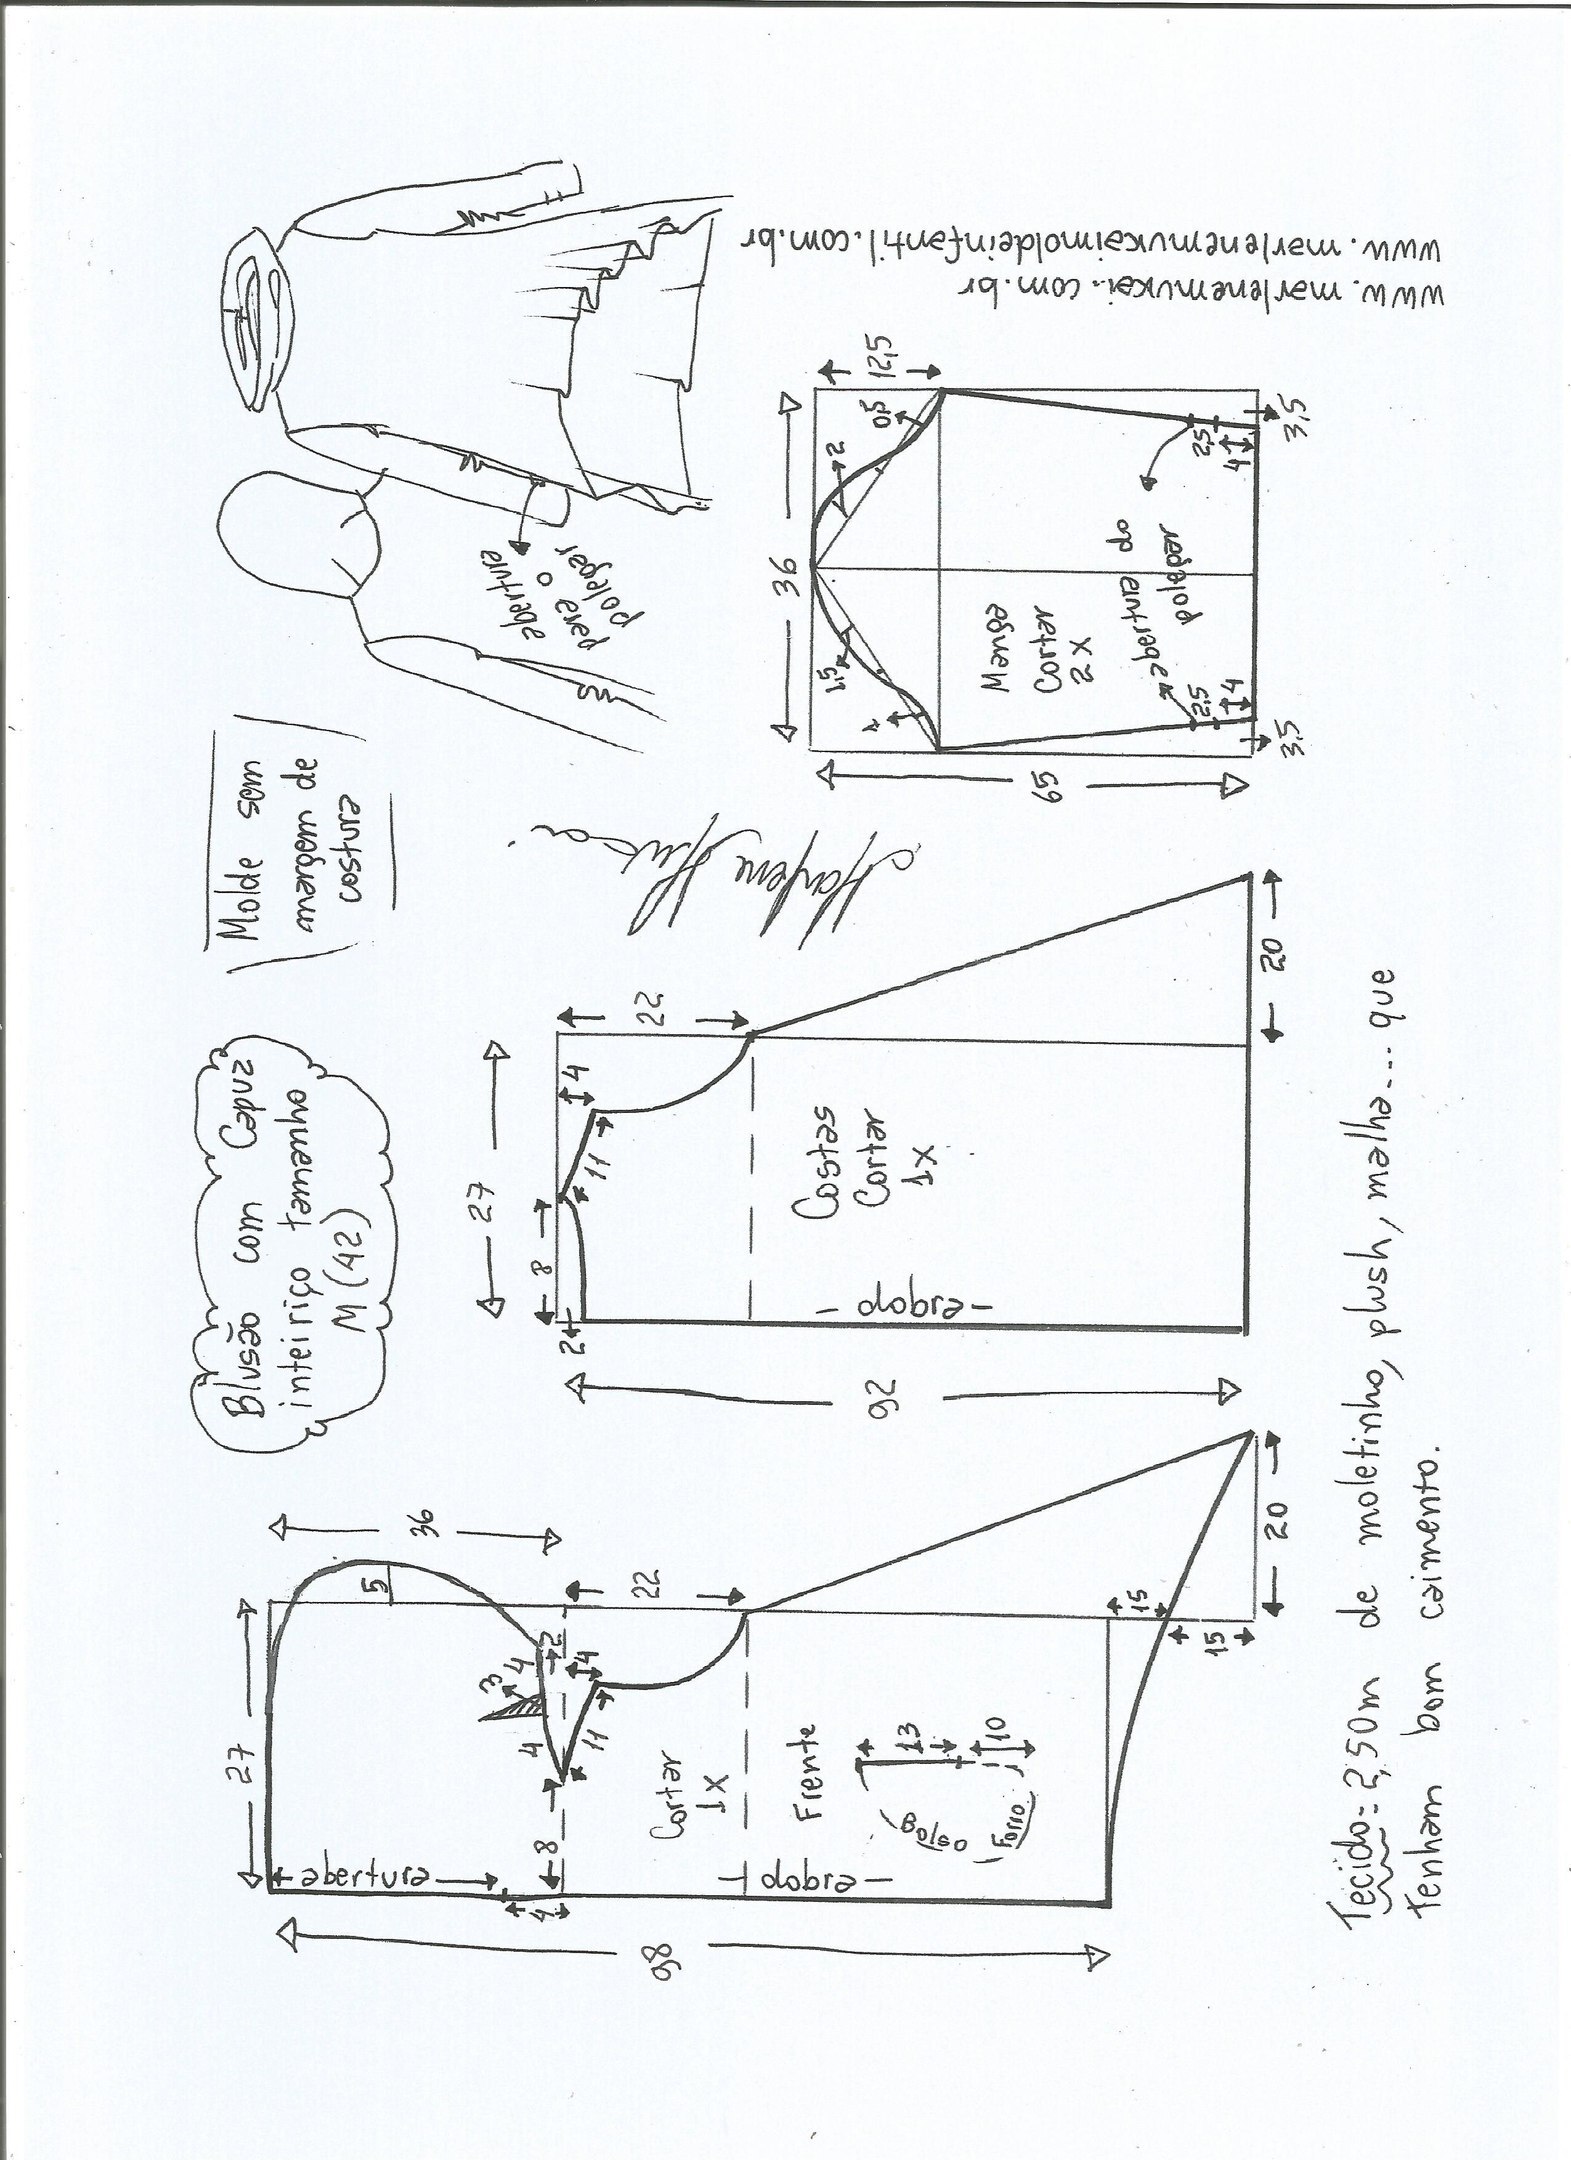 Blusão com Capuz
inteiriço tamanho
M (42)
Molde sem
margem de
costura
abertura
para o
polegar
27
36
5
abertura
4
8
4
3
4
2
11
4
22
Cortar
1x
Frente
dobra
Bolso
13
10
Forro
98
15
15
20
27
8
2
11
4
22
Costas
Cortar
1x
dobra
92
20
Marlene Mukai
36
12,5
1,5
1
2
0,5
Manga
Cortar
2x
abertura do
polegar
65
2,5
4
3,5
2,5
4
3,5
www.marlenemukai.com.br
www.marlenemukaimoldeinfantil.com.br
Tecido: 2,50m de moletinho, plush, malha... que
tenham bom caimento.